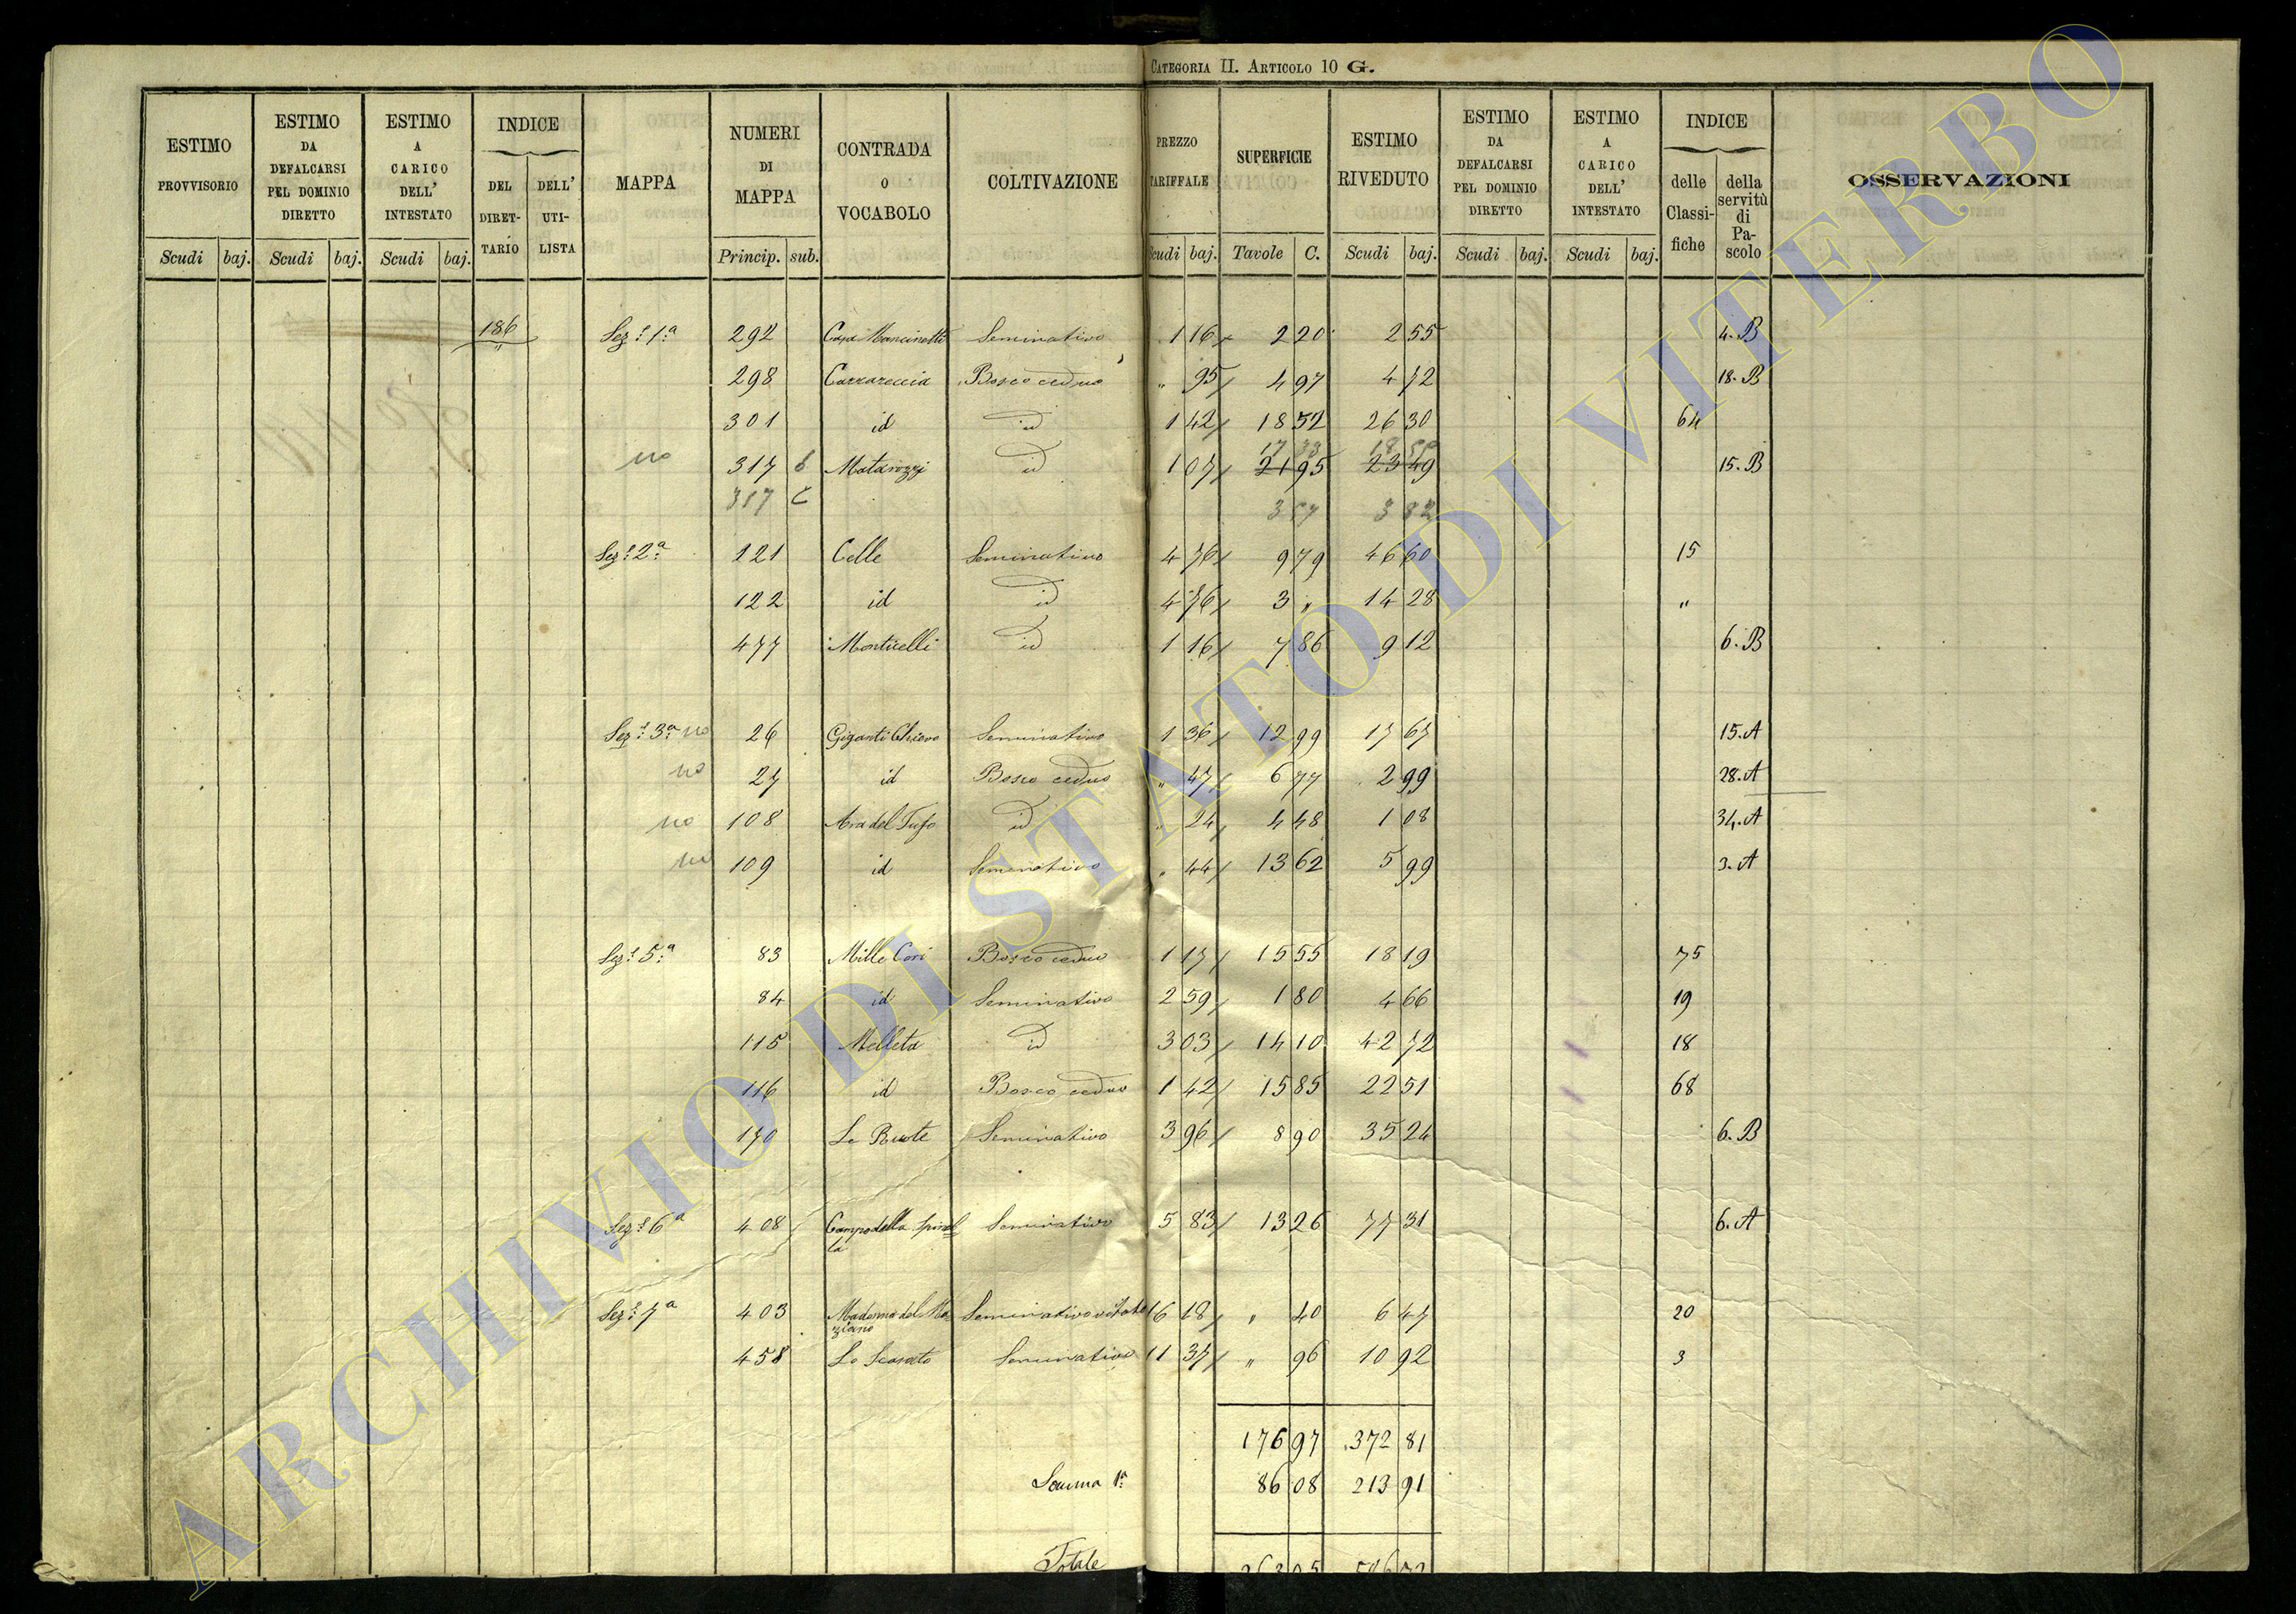 CATEGORIA II. ARTICOLO 10 G.
ESTIMO PROVVISORIO Scudi baj.
ESTIMO DA DEFALCARSI PEL DOMINIO DIRETTO Scudi baj.
ESTIMO A CARICO DELL' INTESTATO Scudi baj.
INDICE DEL DIRETTARIO DELL' UTILISTA
MAPPA
NUMERI DI MAPPA Princip. sub.
CONTRADA O VOCABOLO
COLTIVAZIONE
PREZZO TARIFFALE Scudi baj.
SUPERFICIE Tavole C.
ESTIMO RIVEDUTO Scudi baj.
ESTIMO DA DEFALCARSI PEL DOMINIO DIRETTO Scudi baj.
ESTIMO A CARICO DELL' INTESTATO Scudi baj.
INDICE delle Classifiche della servitù di Pascolo
OSSERVAZIONI
186 Sez.e 1a 292 Casa Mancinetti Seminativo 1 16 2 20 2 55 4. B
298 Carrareccia Bosco ceduo " 95 4 97 4 72 18. B
301 id id 1 42 18 52 26 30 64
no 317 b Matarozzi id 1 07 17 33 21 95 23 49 15. B
317 c 3 82
Sez.e 2a 121 Celle Seminativo 4 76 9 79 46 60 15
122 id id 4 76 3 " 14 28 "
477 Monticelli id 1 16 7 86 9 12 6. B
Sez.e 3a no 26 Giganti Seminativo 1 36 12 99 17 67 15. A
no 27 id Bosco ceduo " 47 6 77 2 99 28. A
no 108 Ara del Tufo id " 24 4 48 1 08 34. A
no 109 id Seminativo " 44 13 62 5 99 3. A
Sez.e 5a 83 Mille Cori Bosco ceduo 1 17 15 55 18 19 75
84 id Seminativo 2 59 1 80 4 66 19
115 Melleta id 3 03 14 10 42 72 18
116 id Bosco ceduo 1 42 15 85 22 51 68
170 Le Ruote Seminativo 3 96 8 90 35 24 6. B
Sez.e 6a 408 Campo della Seminativo 5 83 13 26 77 31 6. A
Sez.e 7a 403 Madonna del Seminativo vitato 16 18 " 40 6 47 20
458 Lo Scarato Seminativo 11 37 " 96 10 92 3
176 97 372 81
Somma 1a 86 08 213 91
Totale 263 05 586 72
ARCHIVIO DI STATO DI VITERBO